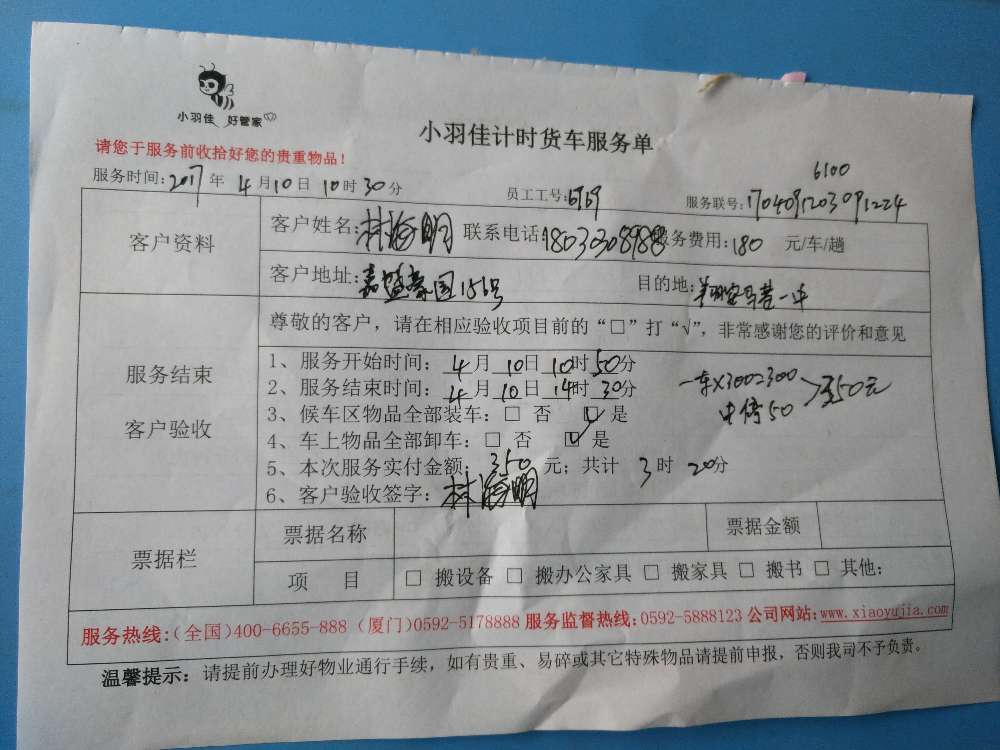 小羽佳 好管家
小羽佳计时货车服务单
请您于服务前收拾好您的贵重物品！
6100
服务时间：2017年 4月10日10时30分 员工工号：6969 服务联号：1704091203091224
客户资料
客户姓名：林海明 联系电话：18030308988 服务费用：180 元/车/趟
客户地址：嘉盛豪园15号 目的地：翔安马巷一中
服务结束
客户验收
尊敬的客户，请在相应验收项目前的“□”打“√”，非常感谢您的评价和意见
1、服务开始时间：4月10日10时50分
2、服务结束时间：4月10日14时30分
一车X300=300
中停50
350元
3、候车区物品全部装车：□ 否 ☑ 是
4、车上物品全部卸车：□ 否 ☑ 是
5、本次服务实付金额：350 元；共计 3时 20分
6、客户验收签字：林海明
票据栏
票据名称 票据金额
项 目 □ 搬设备 □ 搬办公家具 □ 搬家具 □ 搬书 □ 其他：
服务热线：（全国）400-6655-888（厦门）0592-5178888 服务监督热线：0592-5888123 公司网站：www.xiaoyujia.com
温馨提示：请提前办理好物业通行手续，如有贵重、易碎或其它特殊物品请提前申报，否则我司不予负责。